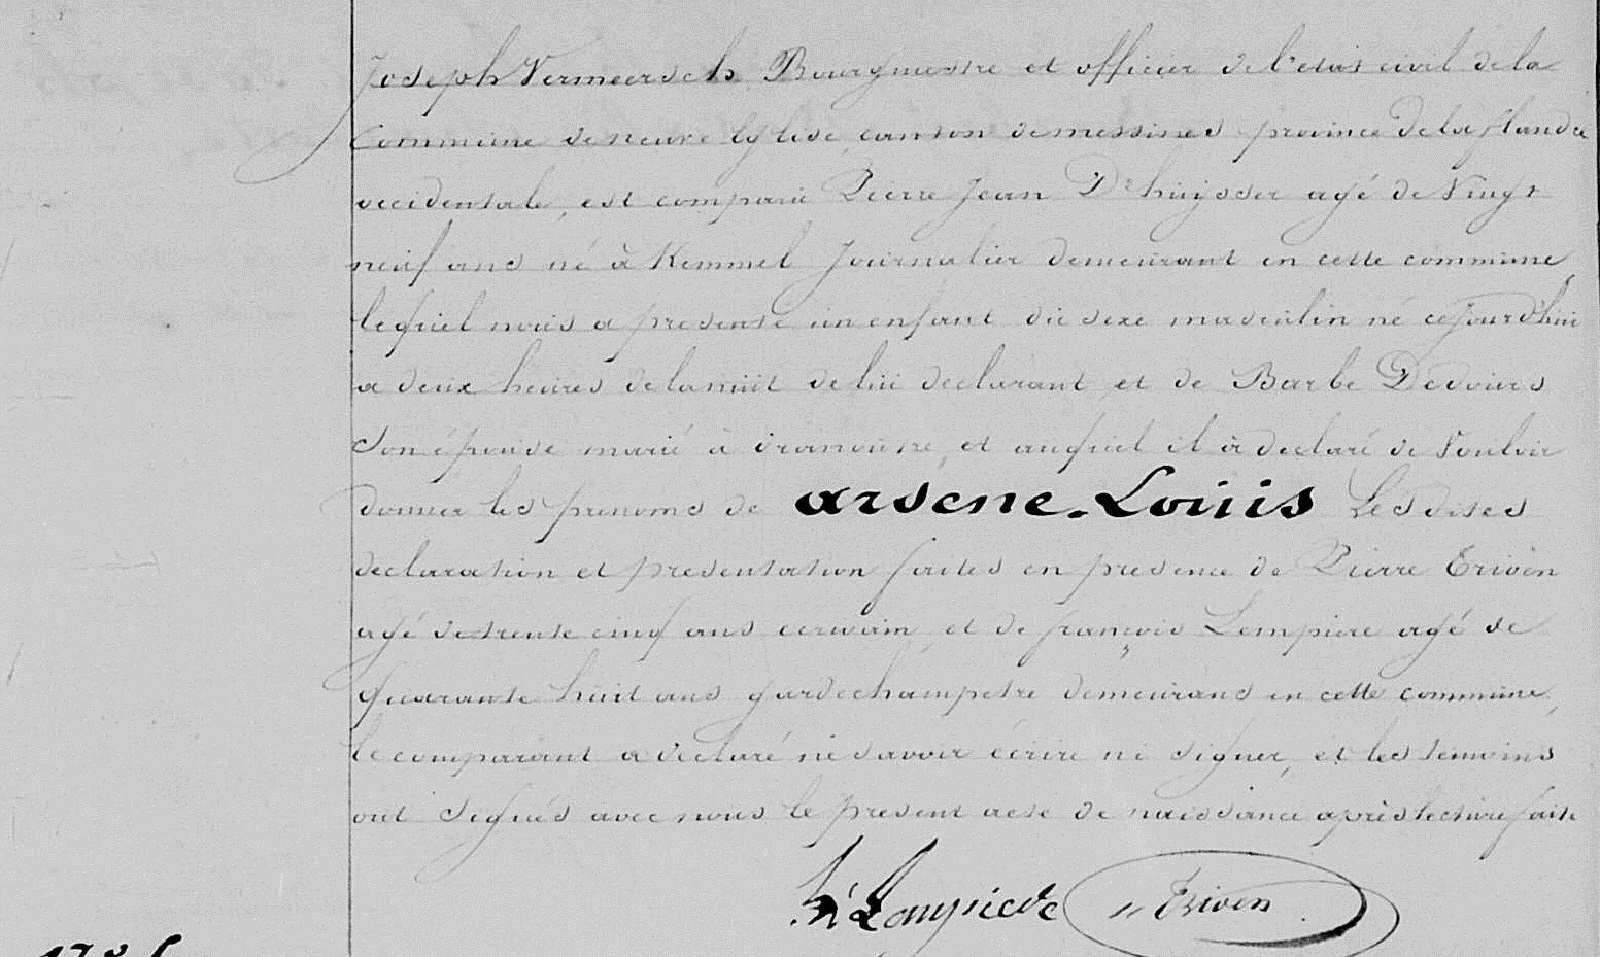 Joseph Vermeersch Bourgmestre et officier de l'etat civil de la
Commune de neuve Eglise, canton de messines province de la flandre
occidentale, est comparu Pierre Jean D'huysser agé de Vingt
neuf ans né à Kemmel Journalier demeurant en cette commune,
lequel nous a presenté un enfant du sexe masculin né cejourd'hui
a deux heures de la nuit de lui declarant et de Barbe
son épouse marié à dranoutre, et auquel il à declaré de Vouloir
donner les prenoms de arsene-Louis Les dites
declaration et presentation faites en presence de Pierre Eriven
agé de trente cinq ans ecrivain, et de françois Lempiere agé de
quarante huit ans garde champetre demeurans en cette commune,
le comparant a declaré ne savoir écrire ni signer, et les temoins
ont signés avec nous le present acte de naissance après lecture faite